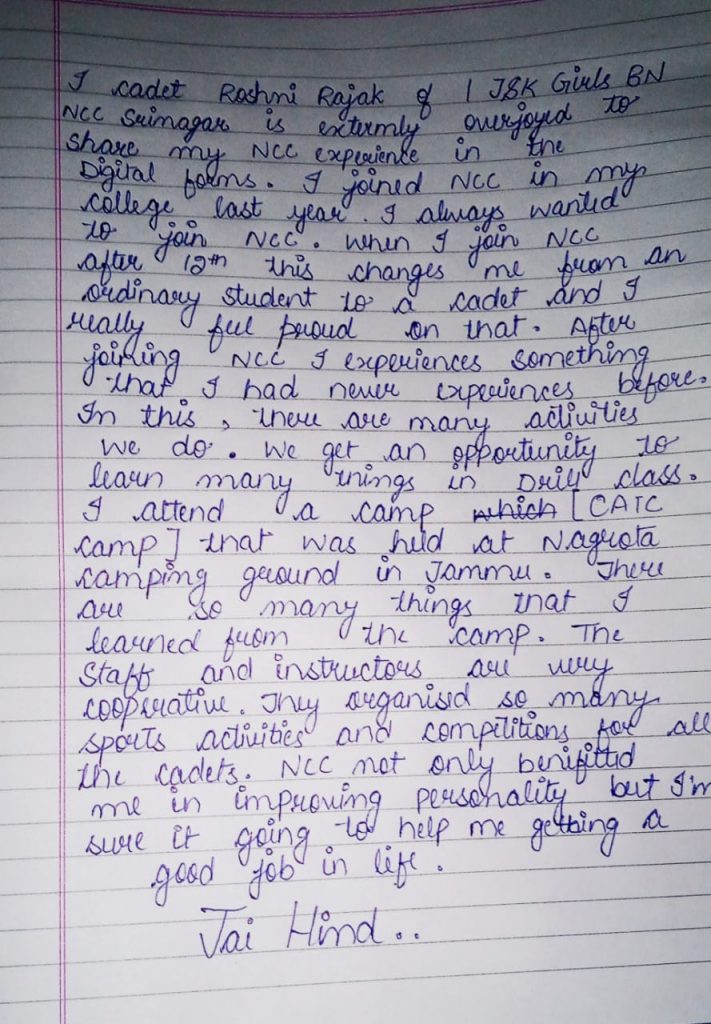 I cadet Rashni Rajak of 1 J&K Girls BN
NCC Srinagar is extermly overjoyed to
share my NCC experience in the
Digital forms. I joined NCC in my
college last year. I always wanted
to join NCC. When I join NCC
after 12th this changes me from an
ordinary student to a cadet and I
really feel proud on that. After
joining NCC I experiences something
that I had never experiences before.
In this, there are many activities
we do. We get an opportunity to
learn many things in Drill class.
I attend a camp which [CATC
camp] that was held at Nagrota
camping ground in Jammu. There
are so many things that I
learned from the camp. The
Staff and instructors are very
cooperative. They organised so many
sports activities and compititions for all
the cadets. NCC not only benifitted
me in improving personality but I'm
sure it going to help me getting a
good job in life.
Jai Hind..